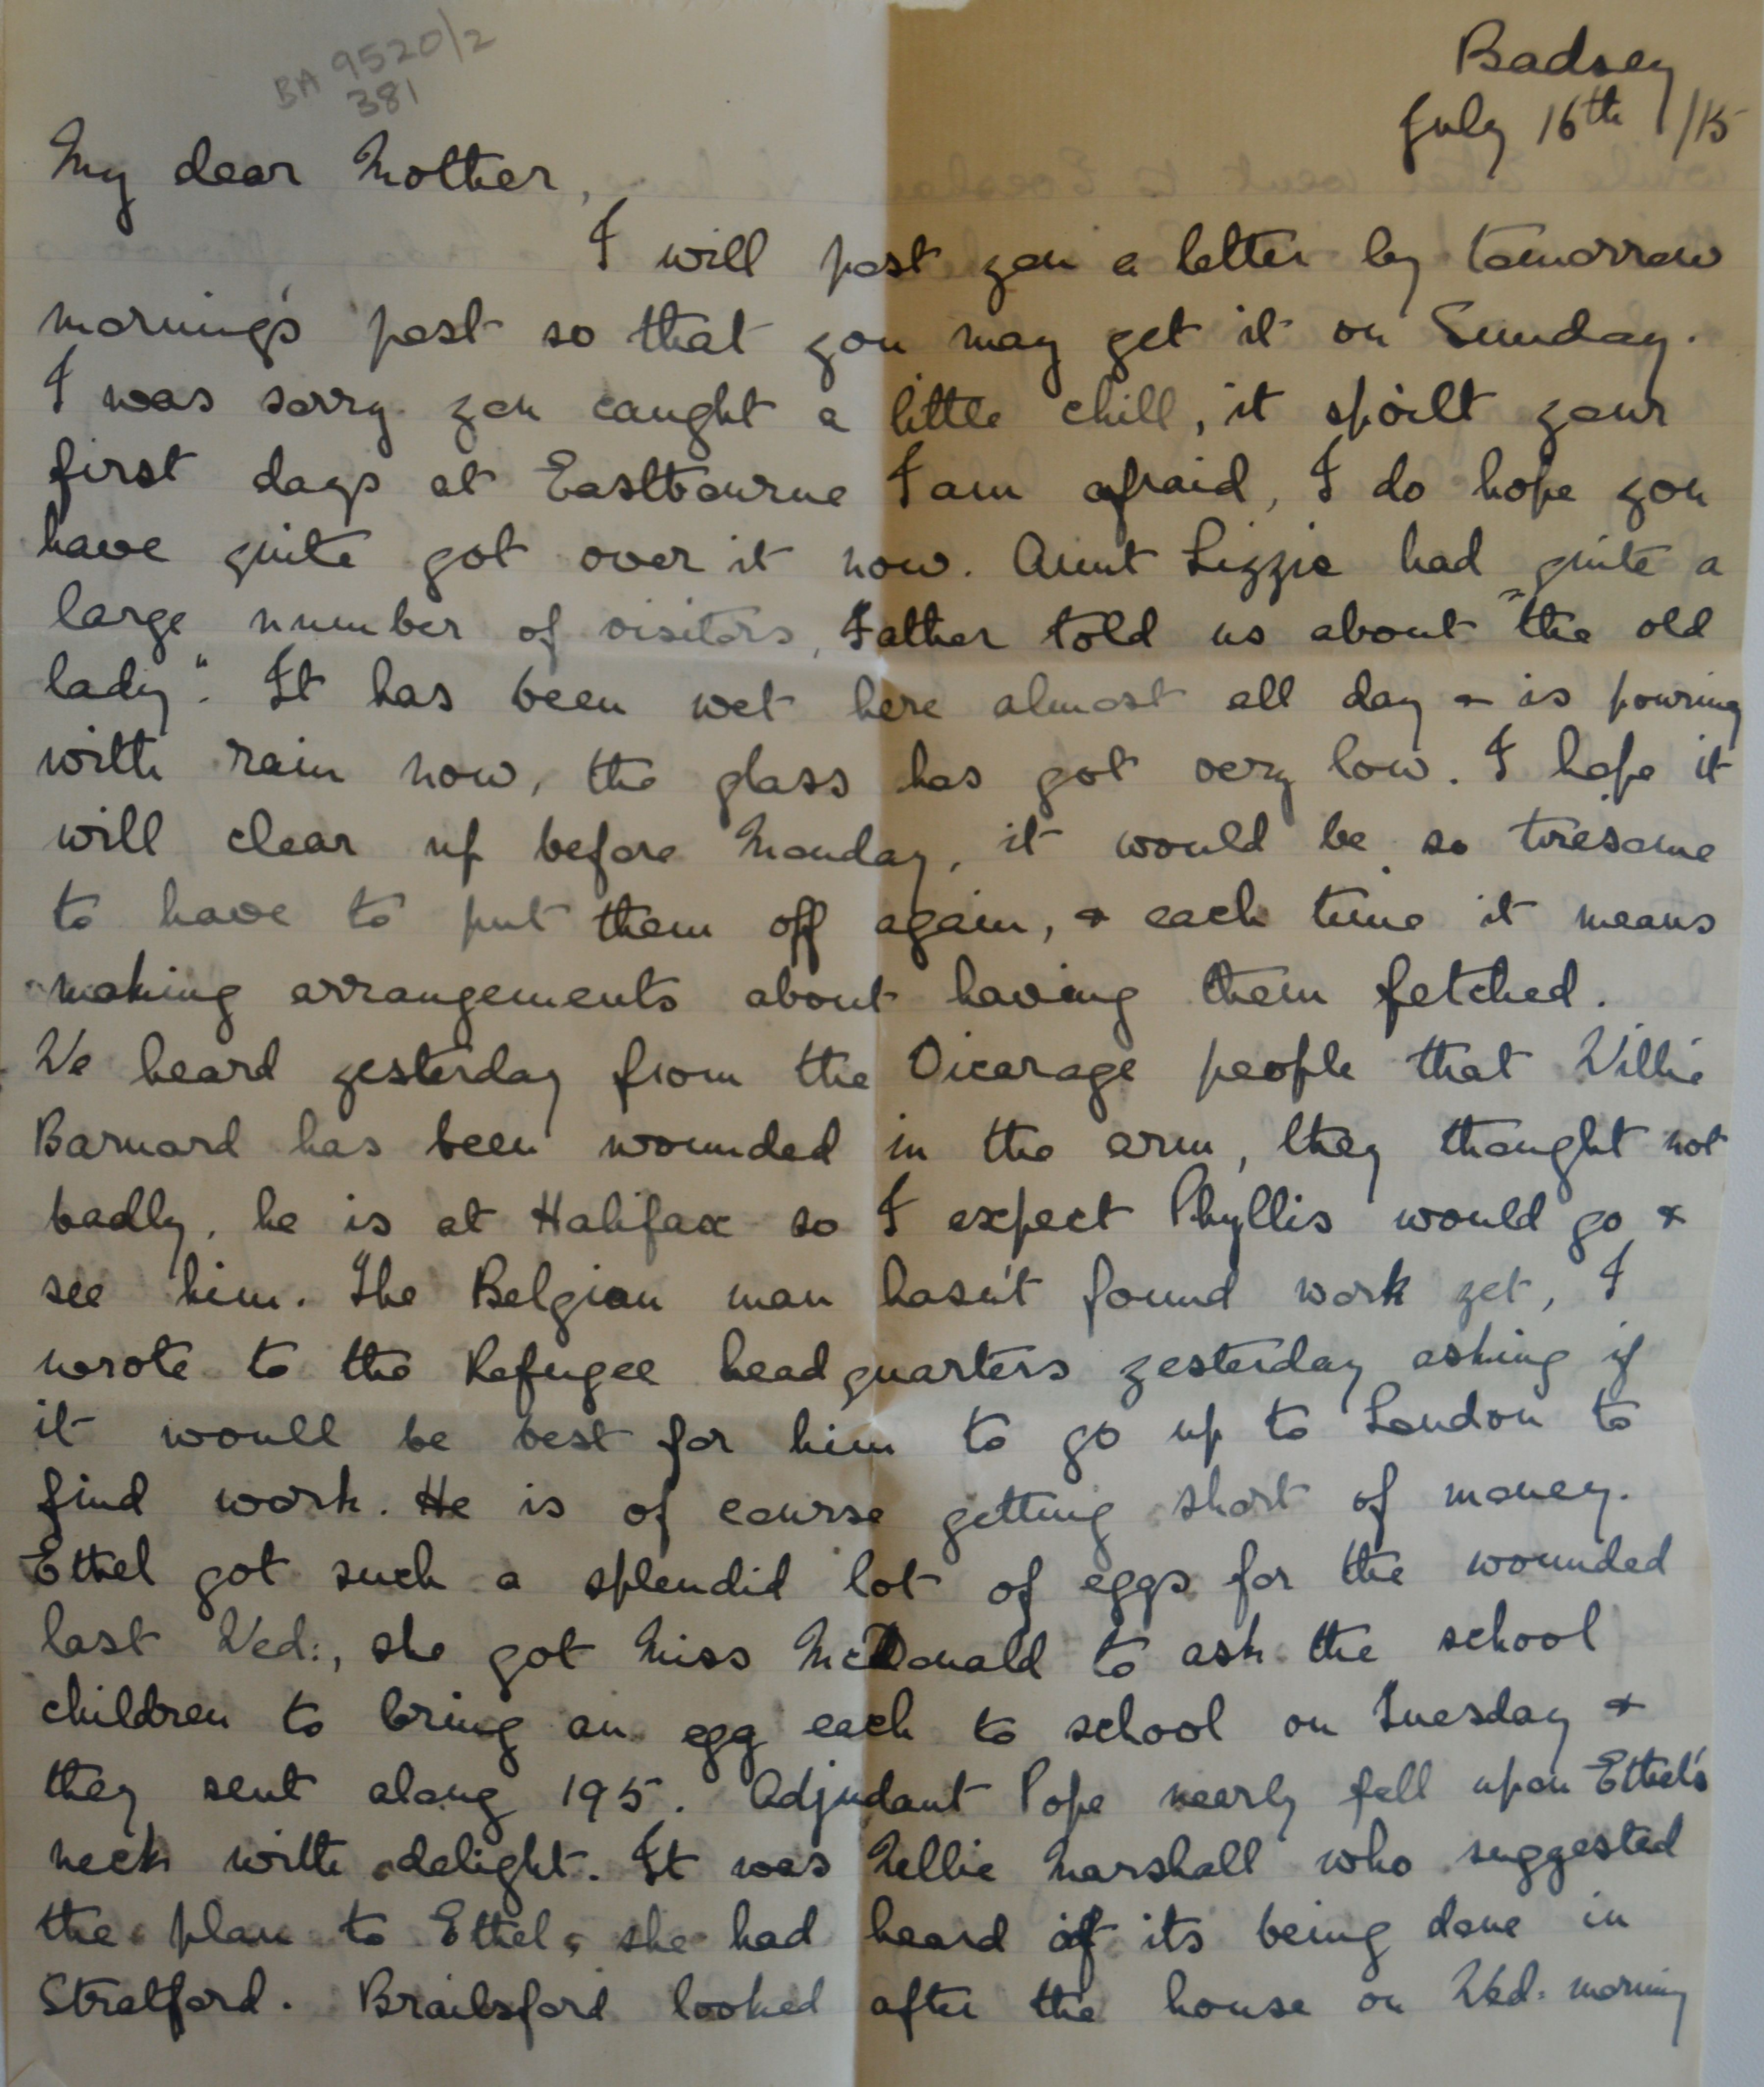 BA 9520/2
381
Badsey
July 16th /15
My dear Mother,
I will post you a letter by tomorrow
morning's post so that you may get it on Sunday.
I was sorry you caught a little chill, it spoilt your
first days at Eastbourne I am afraid, I do hope you
have quite got over it now. Aunt Lizzie had quite a
large number of visitors, Father told us about "the old
lady". It has been wet here almost all day & is pouring
with rain now, the glass has got very low. I hope it
will clear up before Monday, it would be so tiresome
to have to put them off again, & each time it means
making arrangements about having them fetched.
We heard yesterday from the Vicarage people that Willie
Barnard has been wounded in the arm, they thought not
badly, he is at Halifax so I expect Phyllis would go &
see him. The Belgian man hasn't found work yet, I
wrote to the Refugee headquarters yesterday asking if
it would be best for him to go up to London to
find work. He is of course getting short of money.
Ethel got such a splendid lot of eggs for the wounded
last Wed:, she got Miss McDonald to ask the school
children to bring an egg each to school on Tuesday &
they sent along 195. Adjudant Pope nearly fell upon Ethel's
neck with delight. It was Nellie Marshall who suggested
the plan to Ethel, she had heard of its being done in
Stratford. Brailsford looked after the house on Wed: morning